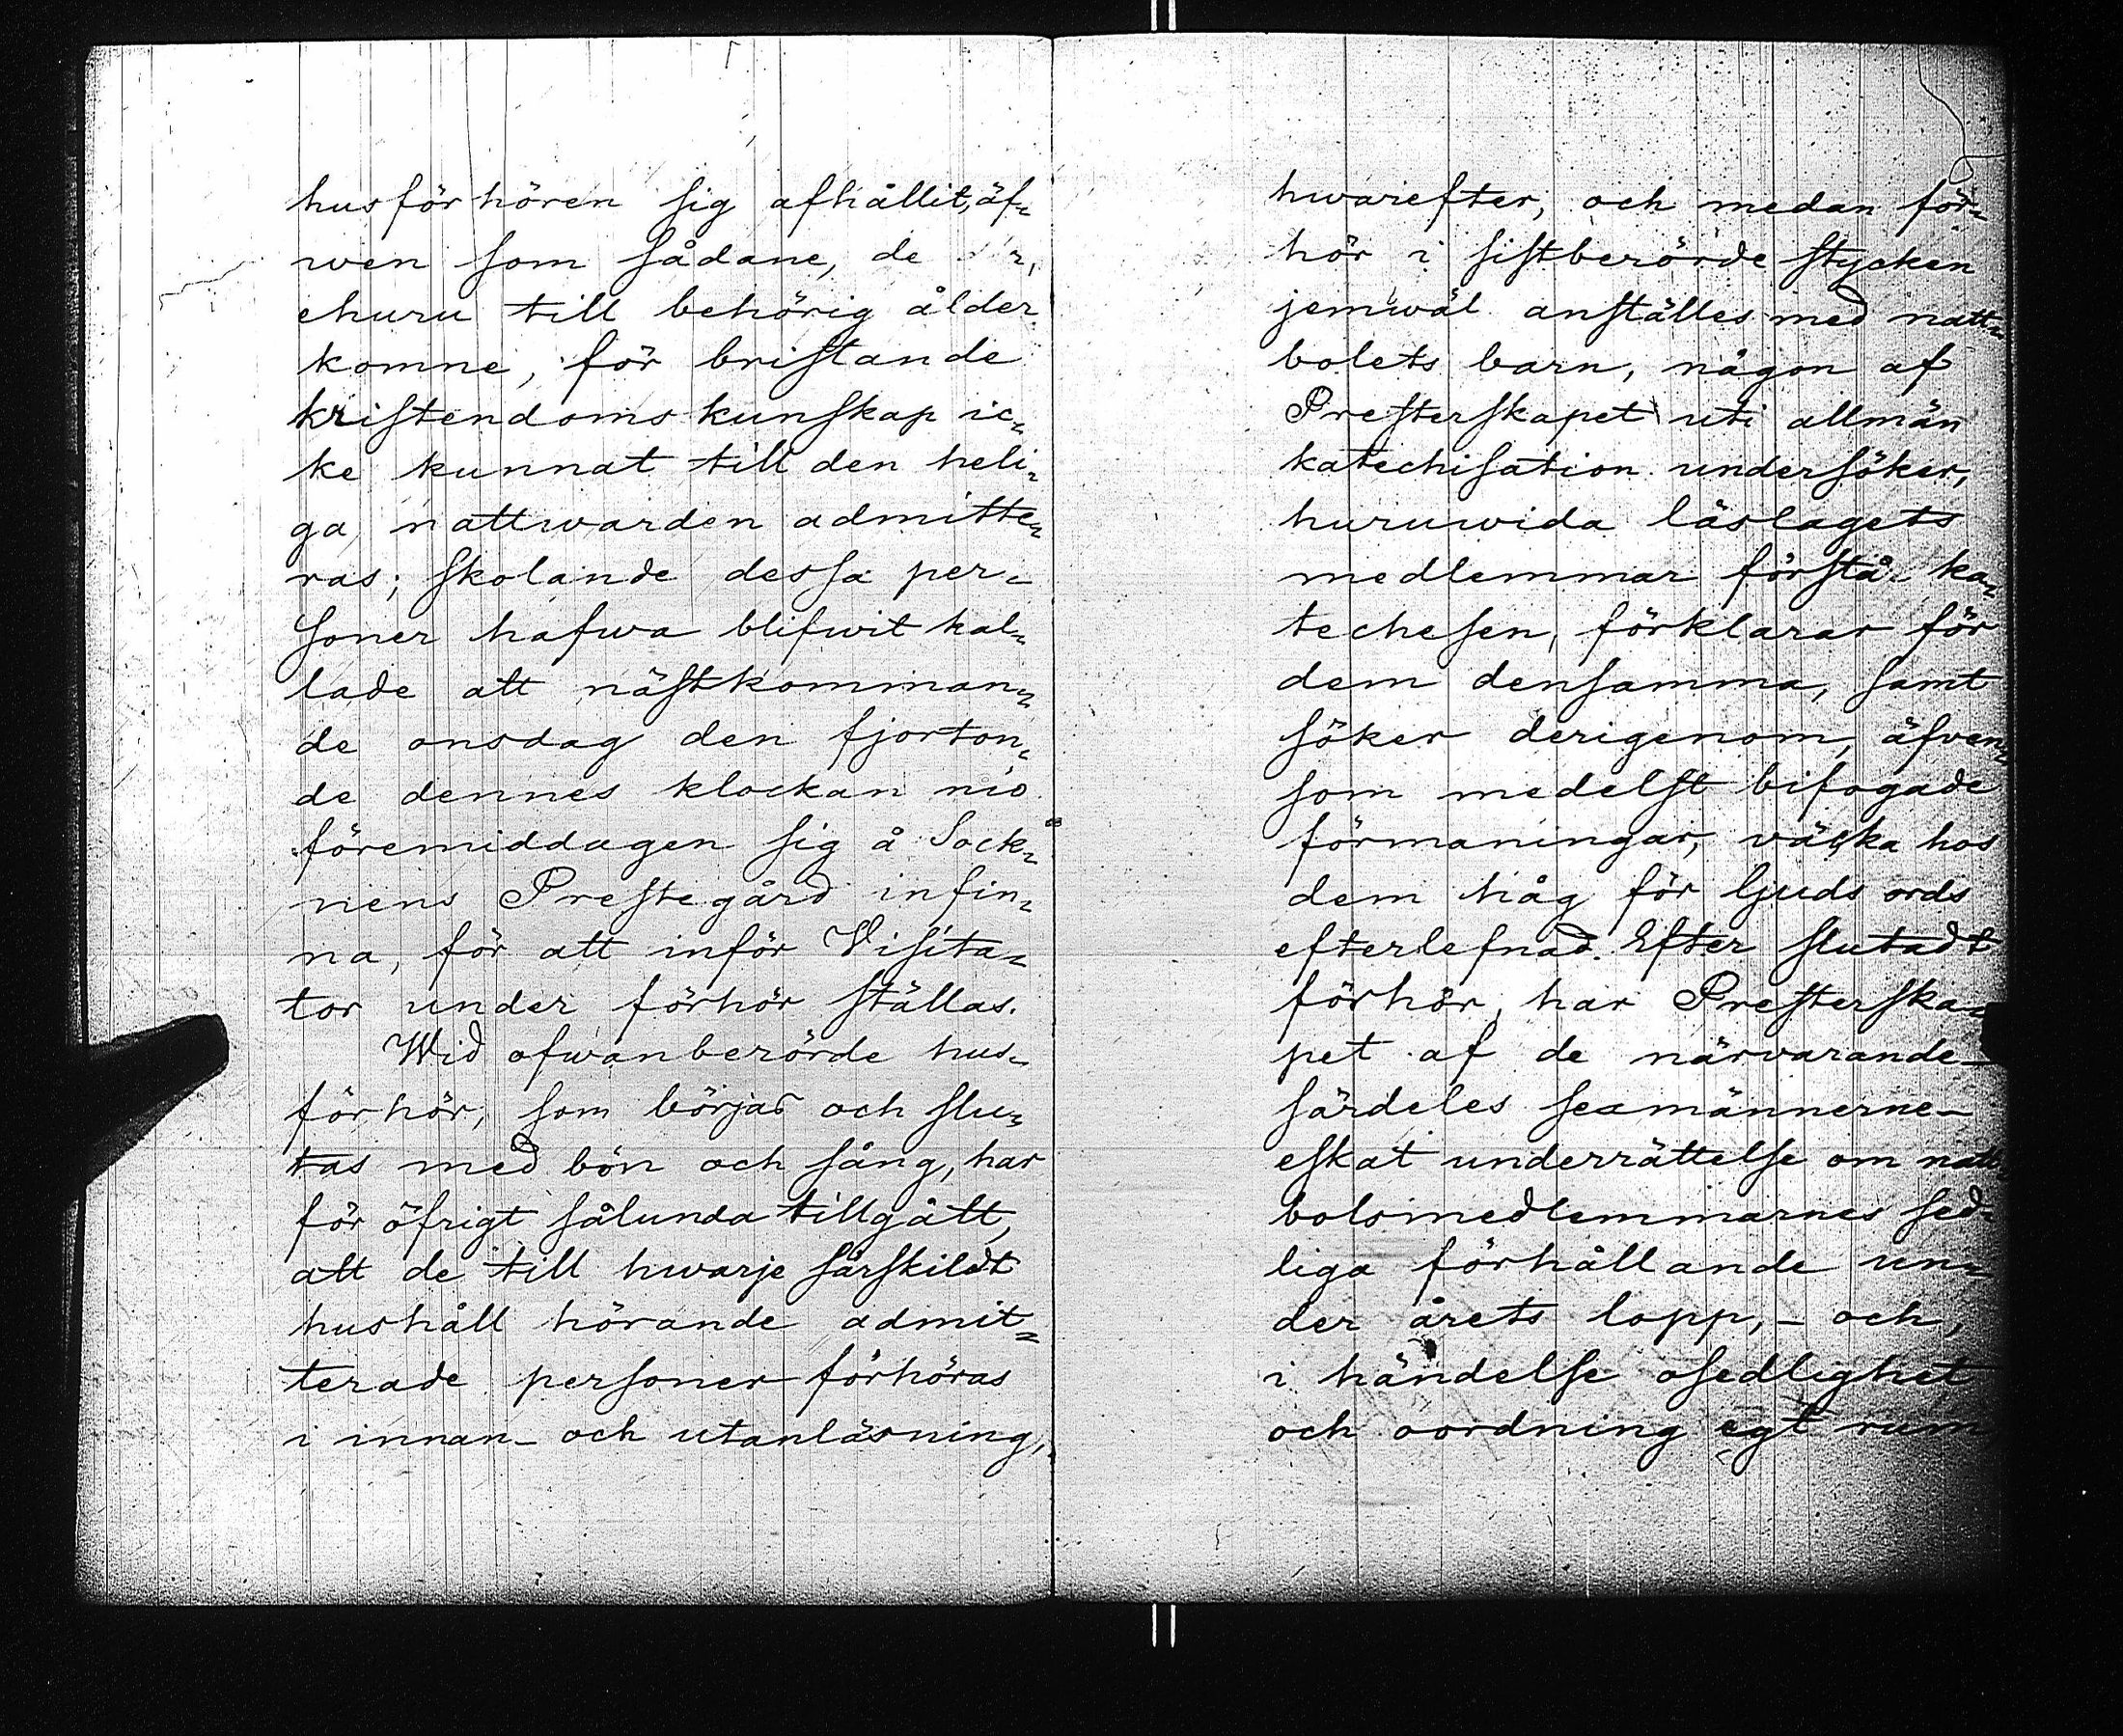 husförhören sig afhållit, äf-
wen som sådane, de
ehuru till behörig ålder
komne, för bristande
kristendoms kunskap ic-
ke kunnat till den heli-
ga nattwarden admitte-
ras; skolande dessa per-
soner hafwa blifwit kal-
lade att nästkomman-
de onsdag den fjorton-
de dennes klockan nio
föremiddagen sig å Sock-
nens Prestegård infin-
na, för att inför Visita-
tor under förhör ställas.
Wid ofwanberörde hus-
förhör, som börjas och slu-
tas med bön och sång, har
för öfrigt sålunda tillgått,
att de till hwarje särskildt
hushåll hörande admit-
terade personer förhöras
i innan- och utanläsning,
hwarefter, och medan för-
hör i sistberörde stycken
jemwäl anställes med natt-
bolets barn, någon af
Presterskapet uti allmän
katechisation undersöker,
huruwida läslagets
medlemmar förstå ka-
techesen, förklarar för
dem densamma, samt
söker derigenom, äfven-
som medelst bifogade
förmaningar, väcka hos
dem håg för ljuds ords
efterlefnad. Efter slutadt
förhör, har Presterska-
pet af de närvarande-
särdeles sexmännerne-
eskat underrättelse om natt-
bolsmedlemmarnes sed-
liga förhållande un-
der årets lopp, - och,
i händelse osedlighet
och oordning egt rum